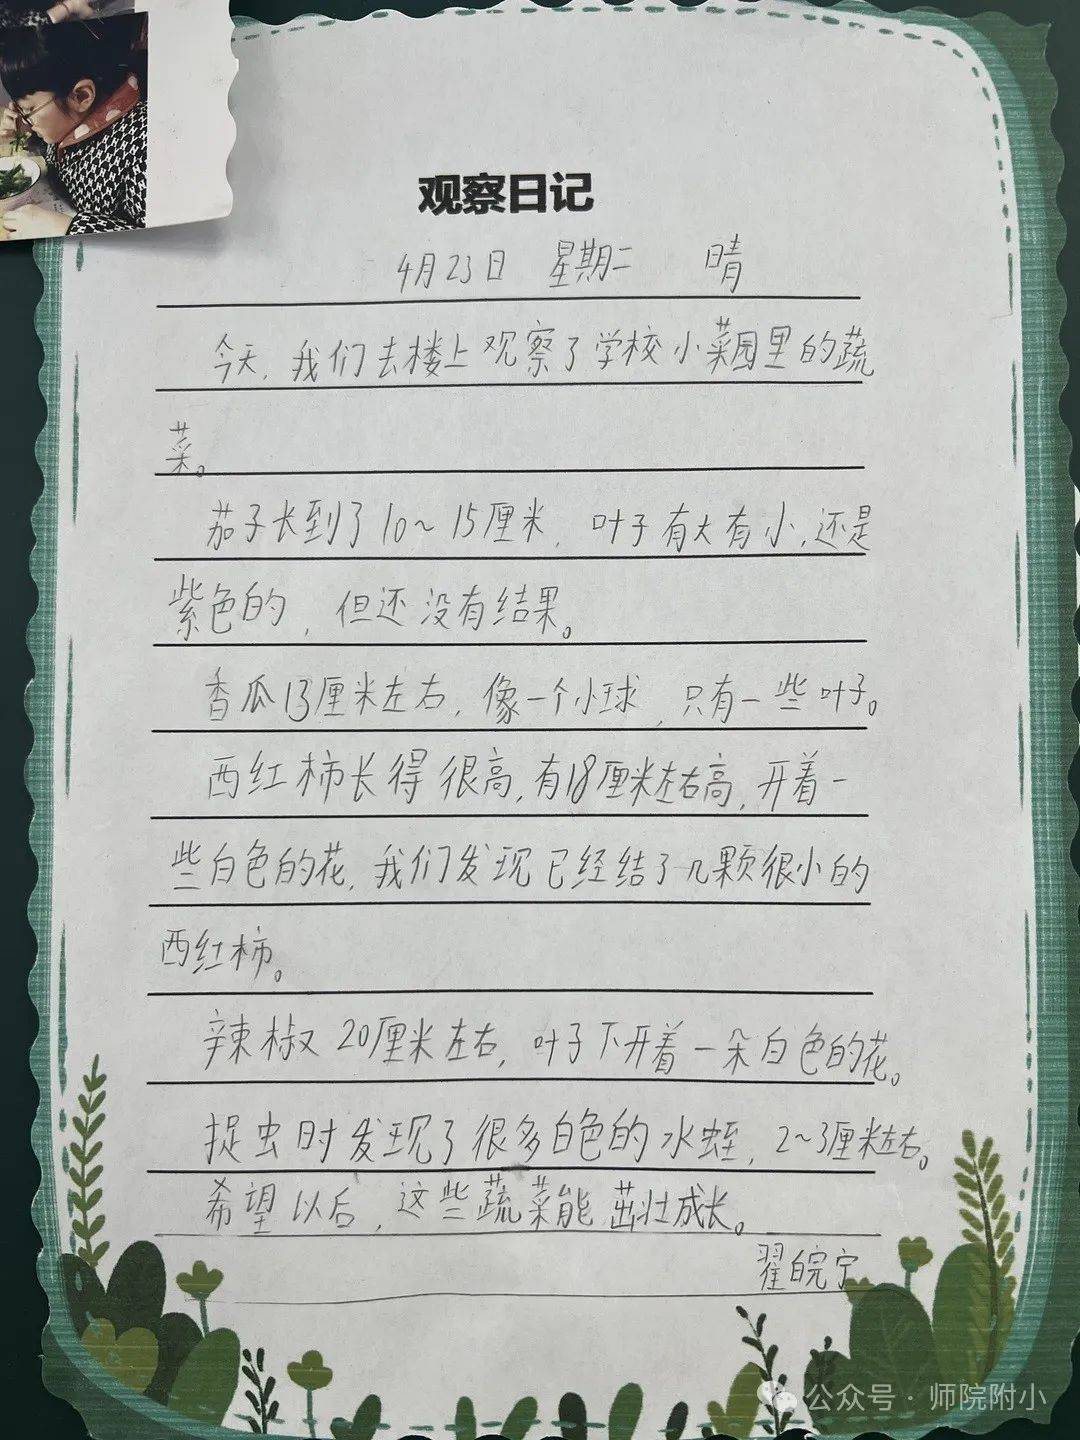 观察日记
4月23日 星期二 晴
今天，我们去楼上观察了学校小菜园里的蔬
菜。
茄子长到了10～15厘米，叶子有大有小，还是
紫色的，但还没有结果。
香瓜13厘米左右，像一个小球，只有一些叶子。
西红柿长得很高，有18厘米左右高，开着一
些白色的花，我们发现已经结了几颗很小的
西红柿。
辣椒20厘米左右，叶子下开着一朵白色的花。
捉虫时发现了很多白色的水蛭，2～3厘米左右。
希望以后，这些蔬菜能茁壮成长。
翟皖宁
公众号·师院附小